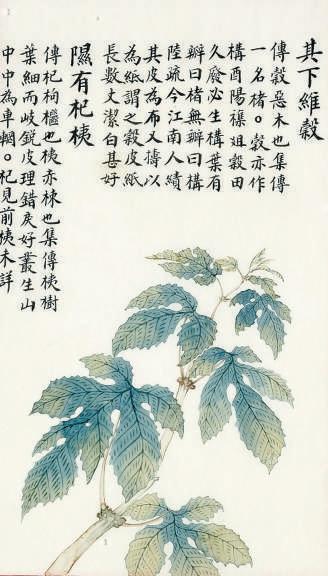 其下維穀
傳穀惡木也集傳
一名楮。穀亦作
構酉陽襍俎穀田
久廢必生構葉有
瓣曰楮無瓣曰構
陸疏今江南人績
其皮為布又擣以
為紙謂之穀皮紙
長數丈潔白甚好
隰有杞桋
傳杞枸檵也桋赤栜也集傳桋樹
葉細而岐銳皮理錯戾好叢生山
中中為車輞。杞見前桋未詳